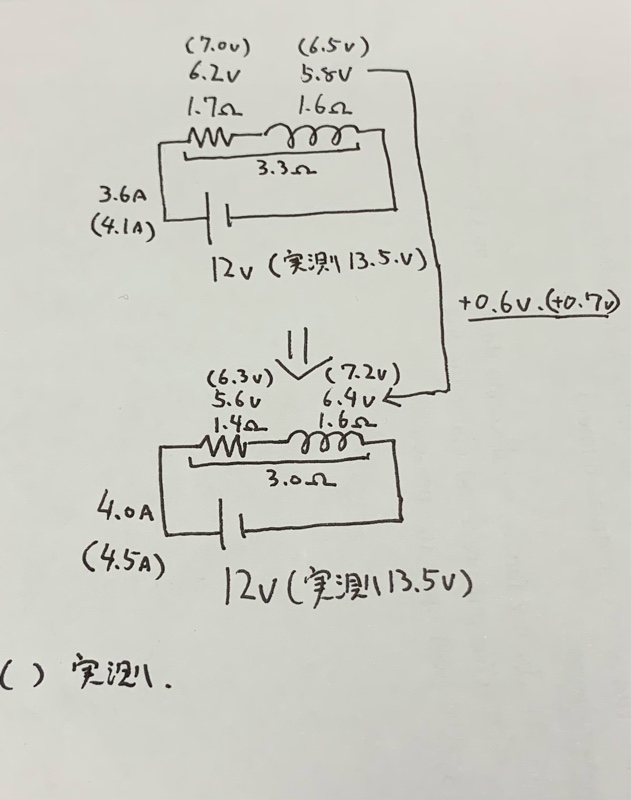 (7.0v) (6.5v)
6.2v 5.8v
1.7Ω 1.6Ω
3.3Ω
3.6A
(4.1A)
12v (実測 13.5.v)
+0.6v.(+0.7v)
(6.3v) (7.2v)
5.6v 6.4v
1.4Ω 1.6Ω
3.0Ω
4.0A
(4.5A)
12v (実測 13.5v)
( ) 実測.